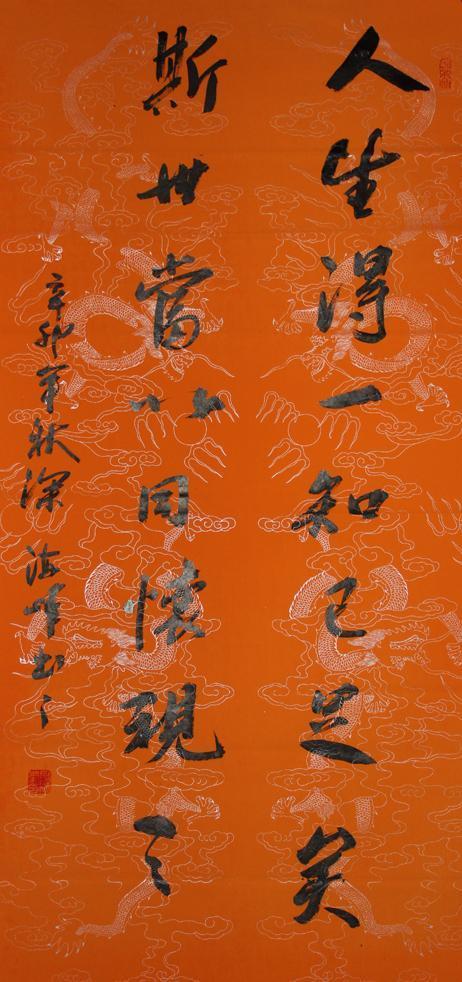 人生得一知己足矣
斯世當以同懷視之
辛卯年秋深 海峰书之